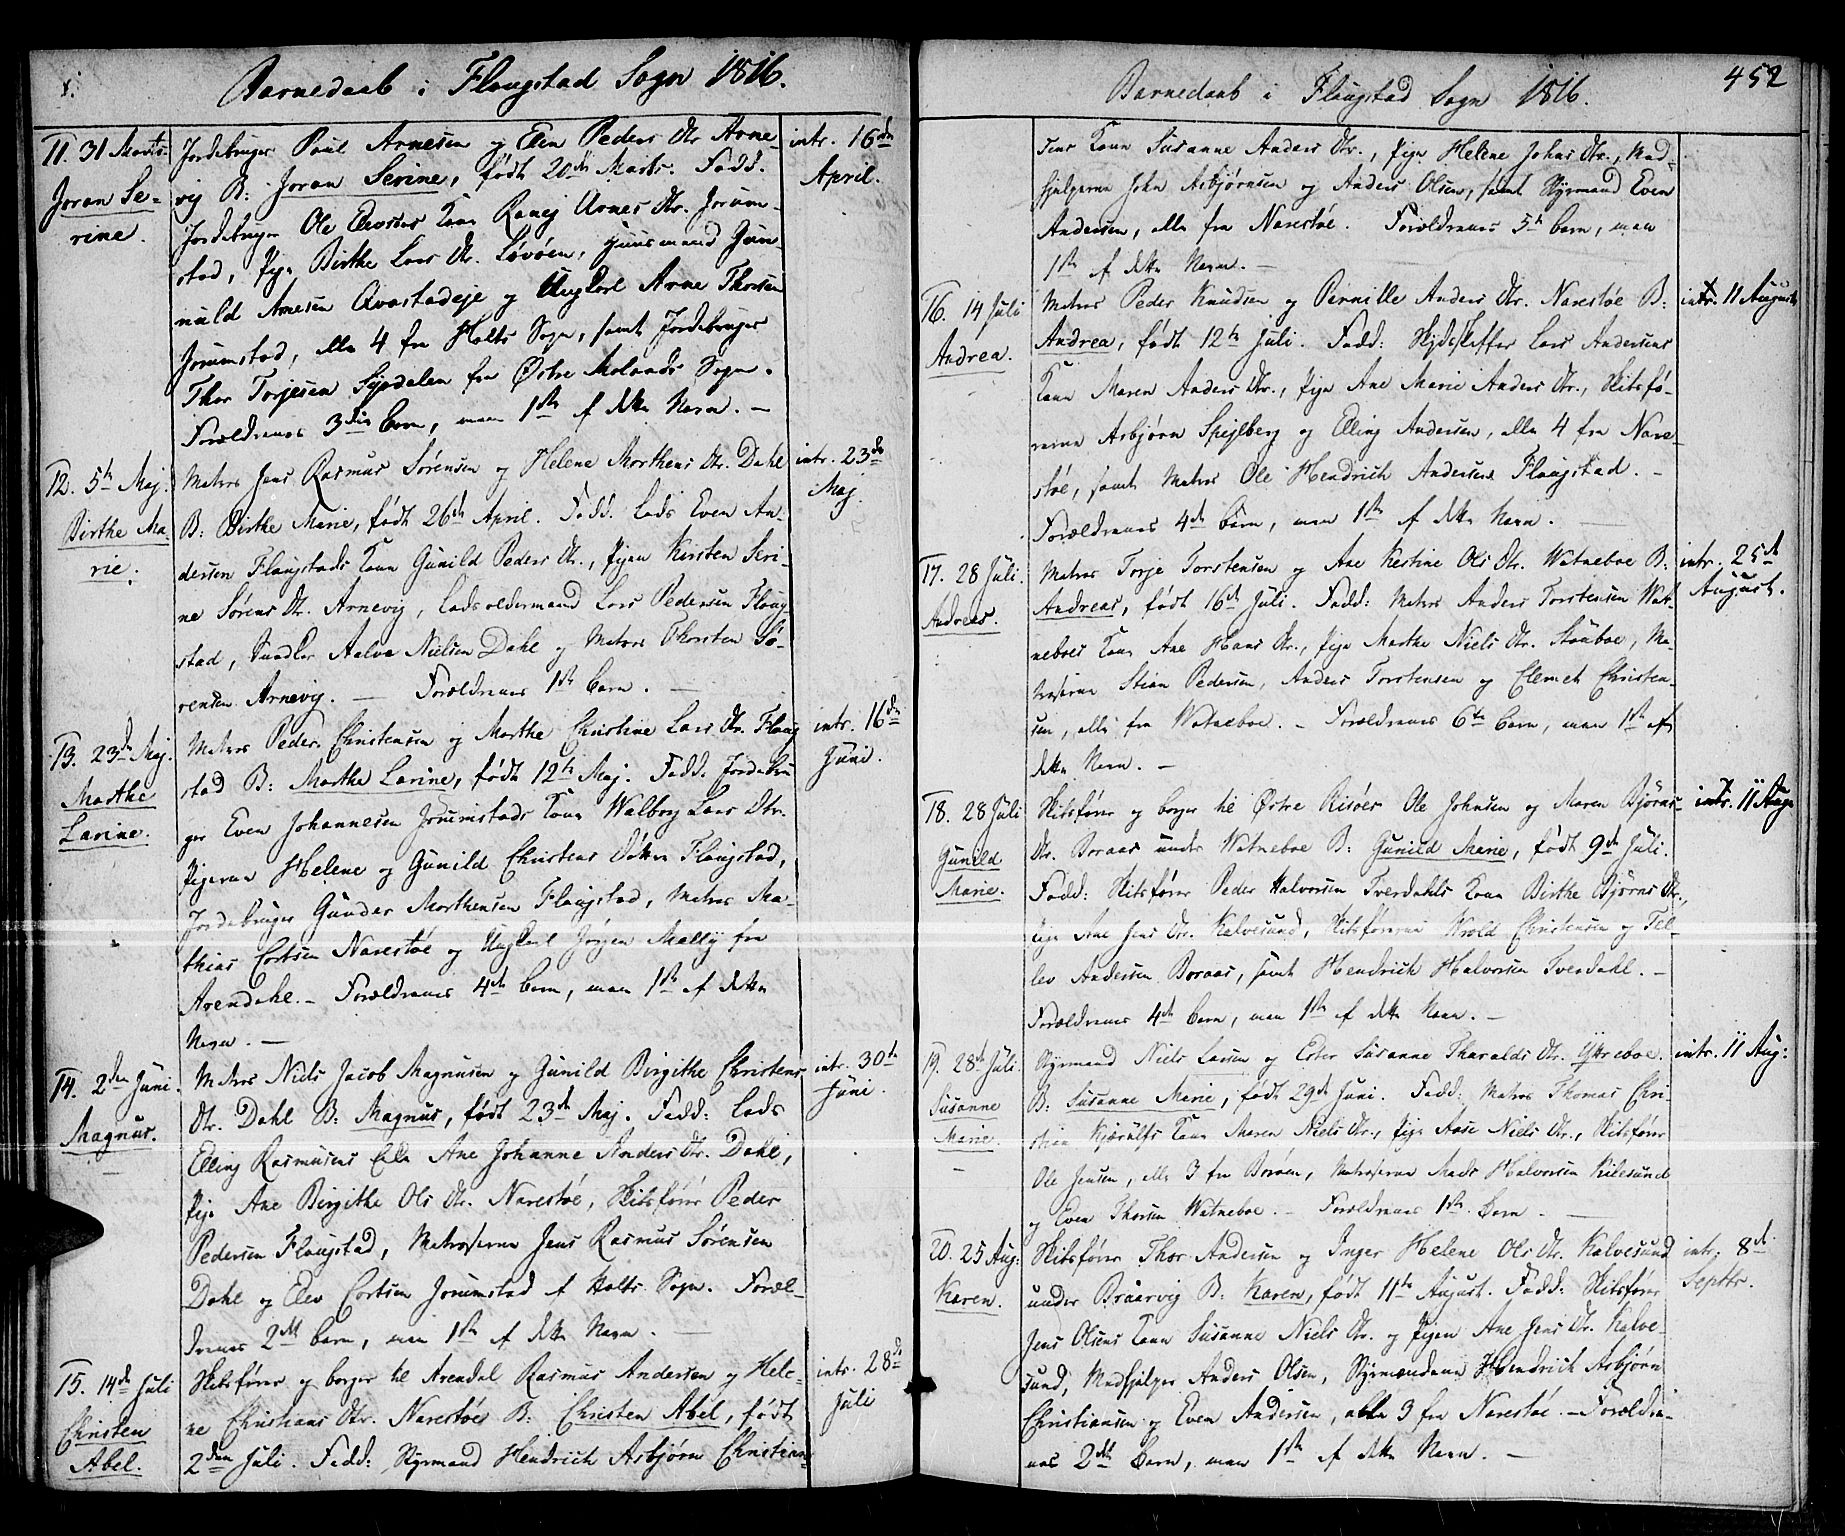 Barnedaab i Flaugstad Sogn 1816.
11. 31 Marts
Joran Se-
rine.
Jordebruger Poul Arnesen og Elen Peders Dtr. Arne-
vig B: Joran Serine, født 20de Marts. Fadd.
Jordebruger Ole Kone Arnes Dtr. Jorum-
stad, Pige Birthe Lars Dtr. Løvøen, Huusmand Gun-
nuld Arnesen og Ungkarl Arne Thorsen
Jorumstad, alle 4 fra Holts Sogn, samt Jordebruger
Thor Torjesen fra Østre Molands Sogn.
Forældrenes 3die Barn, men 1ste af dette Navn. —
intr. 16de
April.
12. 5te Maj.
Birthe Ma
rie.
Matros Jens Rasmus Sørensen og Helene Morthens Dtr. Dahl
B: Birthe Marie, født 26de April. Fadd. Lods Even An-
dersen Flaugstads Kone Gunild Peders Dtr., Pigen Kirsten Seri-
ne Sørens Dtr. Arnevig, Lodsoldermand Lars Pedersen Flaug-
stad, Snedker Aalve Nielsen Dahl og Matros Thorsten Sø-
rensen Arnevig. — Forældrenes 1ste Barn. —
intr. 23de
Maj.
13. 23de Maj.
Marthe
Larine.
Matros Peder Christensen og Marthe Christine Lars Dtr. Flaug
stad B: Marthe Larine, født 12te Maj. Fadd. Jordebru
ger Even Johannesen Jorumstads Kone Walborg Lars Dtr.
Pigerne Helene og Gunild Christens Døtre Flaugstad,
Jordebruger Gunder Morthensen Flaugstad, Matros Ma-
thias Cortsen Narestøe og Ungkarl Jørgen Mally fra
Arendahl. — Forældrenes 4de Barn, men 1ste af dette
Navn. —
intr. 16de
Juni.
14. 2den Juni.
Magnus.
Matros Niels Jacob Magnusen og Gunild Birgithe Christens
Dtr. Dahl B: Magnus, født 23de Maj. Fadd: Lods
Elling Rasmusens Ane Johanne Anders Dtr. Dahl,
Pige Ane Birgithe Ols Dtr. Narestøe, Skibsfører Peder
Pedersen Flaugstad, Matroserne Jens Rasmus Sørensen
Dahl og Elev Cortsen Jorumstad af Holts Sogn. Foræl-
drenes 2det Barn, men 1ste af dette Navn. —
intr. 30te
Juni.
15. 14de Juli
Christen
Abel.
Skibsfører og borger til Arendal Rasmus Andersen og Hele-
ne Christians Dtr. Narestøe B: Christen Abel, født
2den Juli. Fadd: Styrmand Hendrich Asbjørn Christian-
intr. 28de
Juli
452
Barnedaab i Flaugstad Sogn 1816.
sens Kone Susanne Anders Dtr., Pige Helene Johns Dtr., Mad-
hjelperne John Asbjørnsen og Anders Olsen, samt Styrmand Even
Andersen, alle fra Narestøe. Forældrenes 5te Barn, men
1ste af dette Navn. —
16. 14 Juli
Andrea.
Matros Peder Knudsen og Pernille Anders Dtr. Narestøe B:
Andrea, født 12te Juli. Fadd: Lars Andersens
Kone Maren Anders Dtr., Pige Ane Marie Anders Dtr., Skibsfø-
rerne Asbjørn Spejlberg og Elling Andersen, alle 4 fra Nare-
støe, samt Matros Ole Hendrich Andersen Flaugstad. —
Forældrenes 4de Barn, men 1ste af dette Navn. —
intr. 11 August
17. 28 Juli.
Andreas.
Matros Torje Torstensen og Ane Kestine Ols Dtr. Watneboe B:
Andreas, født 16de Juli. Fadd: Matros Anders Torstensen Wat-
neboes Kone Ane Hans Dtr., Pige Marthe Niels Dtr. Stouboe, Ma-
troserne Stian Pedersen, Anders Torstensen og Clemet Christen-
sen, alle fra Watneboe. — Forældrenes 6te Barn, men 1ste af
dette Navn. —
intr. 25de
August.
18. 28 Juli
Gunild
Marie.
Skibsfører og borger til Østre Risøer Ole Johnsen og Maren Bjørns-
Dtr. Boraas under Watneboe B: Gunild Marie, født 9de Juli.
Fadd: Skibsfører Peder Halvorsen Tverdahls Kone Birthe Bjørns Dtr.,
Pige Ane Jens Dtr. Kalvesund, Skibsførerne Christensen og Tel-
lev Andersen Boraas, samt Hendrich Halvorsen Tverdahl. —
Forældrenes 4de Barn, men 1ste af dette Navn. —
intr. 11 Aug.
19. 28de Juli.
Susanne
Marie.
Styrmand Niels Larsen og Ester Susanne Tharalds Dtr. Yttreboe.
B: Susanne Marie, født 29de Juni. Fadd: Matros Thomas Chri-
stian Kjærulfs Kone Maren Niels Dtr., Pige Aase Niels Dtr., Skibsfører
Ole Jensen, alle 3 fra Borøen, Matroserne Mads Halvorsen Kilesund
og Even Thorsen Watneboe. — Forældrenes 1ste Barn. —
intr. 11 Aug:
20. 25 Aug:
Karen.
Skibsfører Thor Andersen og Inger Helene Ols Dtr. Kalvesund
under Braarvig B: Karen, født 11te August. Fadd: Skibsfører
Jens Olsens Kone Susanne Niels Dtr. og Pigen Ane Jens Dtr. Kalve-
sund, Madhjelper Anders Olsen, Styrmændene Hendrich Asbjørn
Christiansen og Even Andersen, alle 3 fra Narestøe. — Forældre-
nes 2det Barn, men 1ste af dette Navn. —
intr. 8de
Septbr.